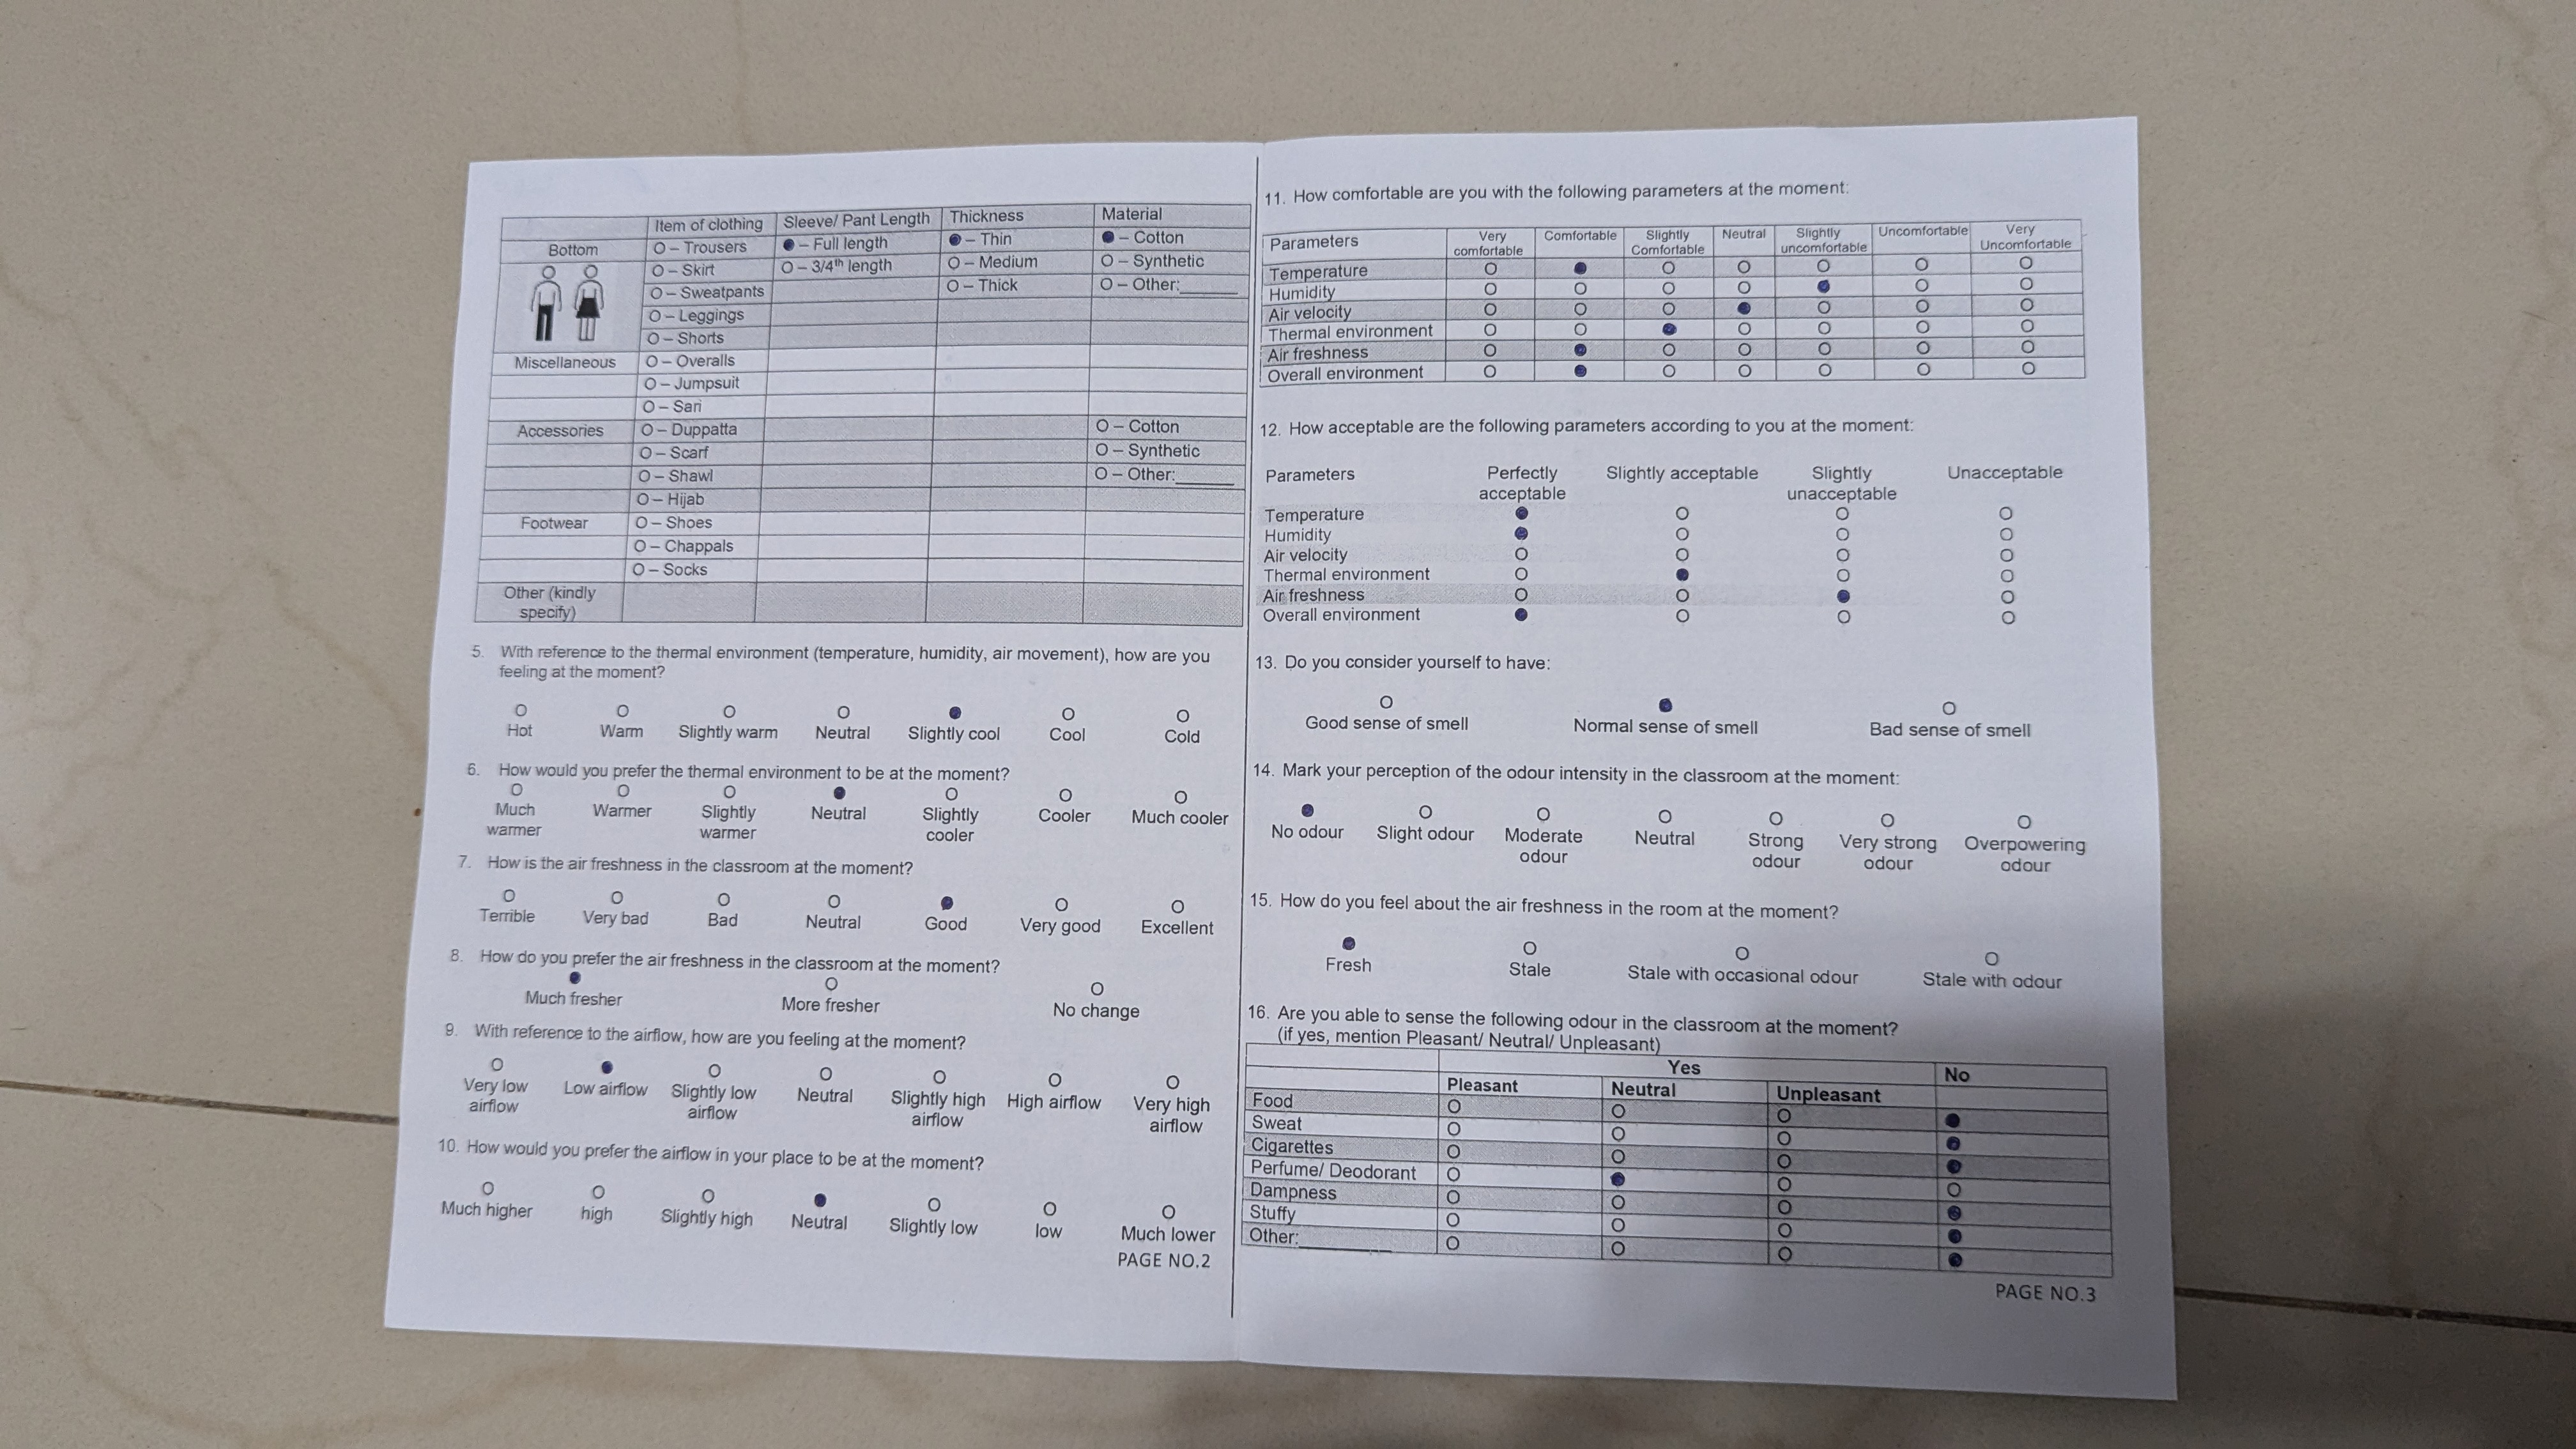 Item of clothing Sleeve/ Pant Length Thickness Material
Bottom O – Trousers ● – Full length ● – Thin ● – Cotton
O – Skirt O – 3/4th length O – Medium O – Synthetic
O – Sweatpants O – Thick O – Other:______
O – Leggings
O – Shorts
Miscellaneous O – Overalls
O – Jumpsuit
O – Sari
Accessories O – Duppatta O – Cotton
O – Scarf O – Synthetic
O – Shawl O – Other:______
O – Hijab
Footwear O – Shoes
O – Chappals
O – Socks
Other (kindly
specify)
5. With reference to the thermal environment (temperature, humidity, air movement), how are you
feeling at the moment?
O O O O ● O O
Hot Warm Slightly warm Neutral Slightly cool Cool Cold
6. How would you prefer the thermal environment to be at the moment?
O O O ● O O O
Much Warmer Slightly Neutral Slightly Cooler Much cooler
warmer warmer cooler
7. How is the air freshness in the classroom at the moment?
O O O O ● O O
Terrible Very bad Bad Neutral Good Very good Excellent
8. How do you prefer the air freshness in the classroom at the moment?
● O O
Much fresher More fresher No change
9. With reference to the airflow, how are you feeling at the moment?
O ● O O O O O
Very low Low airflow Slightly low Neutral Slightly high High airflow Very high
airflow airflow airflow airflow
10. How would you prefer the airflow in your place to be at the moment?
O O O ● O O O
Much higher high Slightly high Neutral Slightly low low Much lower
PAGE NO.2
11. How comfortable are you with the following parameters at the moment:
Parameters Very Comfortable Slightly Neutral Slightly Uncomfortable Very
comfortable Comfortable uncomfortable Uncomfortable
Temperature O ● O O O O O
Humidity O O O O ● O O
Air velocity O O O ● O O O
Thermal environment O O ● O O O O
Air freshness O ● O O O O O
Overall environment O ● O O O O O
12. How acceptable are the following parameters according to you at the moment:
Parameters Perfectly Slightly acceptable Slightly Unacceptable
acceptable unacceptable
Temperature ● O O O
Humidity ● O O O
Air velocity O O O O
Thermal environment O ● O O
Air freshness O O ● O
Overall environment ● O O O
13. Do you consider yourself to have:
O ● O
Good sense of smell Normal sense of smell Bad sense of smell
14. Mark your perception of the odour intensity in the classroom at the moment:
● O O O O O O
No odour Slight odour Moderate Neutral Strong Very strong Overpowering
odour odour odour odour
15. How do you feel about the air freshness in the room at the moment?
● O O O
Fresh Stale Stale with occasional odour Stale with odour
16. Are you able to sense the following odour in the classroom at the moment?
(if yes, mention Pleasant/ Neutral/ Unpleasant)
Yes No
Pleasant Neutral Unpleasant
Food O O O ●
Sweat O O O ●
Cigarettes O O O ●
Perfume/ Deodorant O ● O O
Dampness O O O ●
Stuffy O O O ●
Other:__________ O O O ●
PAGE NO.3